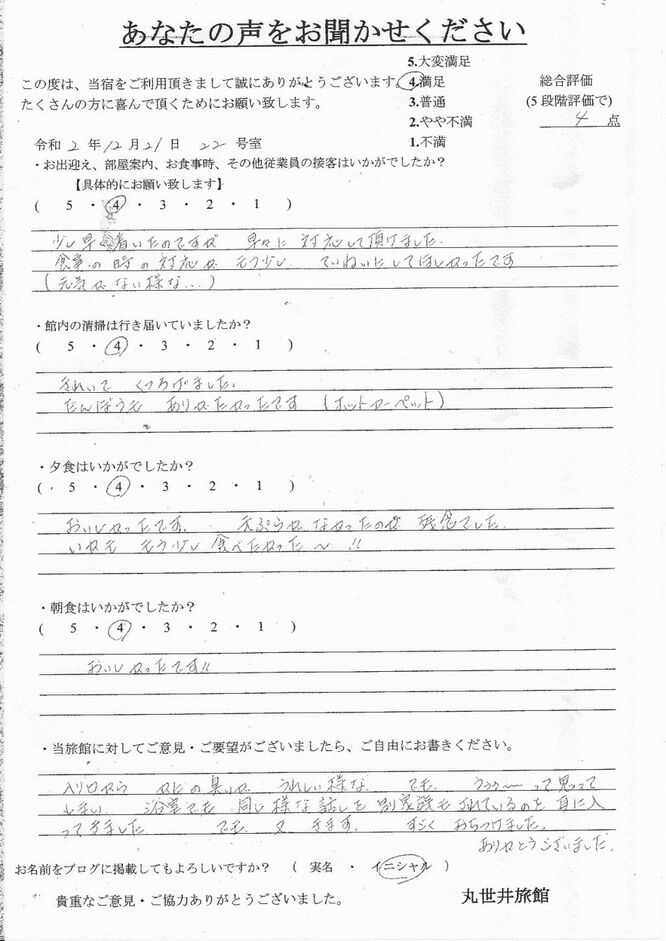 あなたの声をお聞かせください
この度は、当宿をご利用頂きまして誠にありがとうございます。
たくさんの方に喜んで頂くためにお願い致します。
5.大変満足
4.満足
3.普通
2.やや不満
1.不満
総合評価
(5段階評価で)
4 点
令和 2 年 12月 21 日 22 号室
・お出迎え、部屋案内、お食事時、その他従業員の接客はいかがでしたか?
【具体的にお願い致します】
( 5 ・ 4 ・ 3 ・ 2 ・ 1 )
少し早く着いたのですが 早々に 対応して頂けました。
食事の時の対応が もう少し ていねいにしてほしかったです
(元気がない様な…)
・館内の清掃は行き届いていましたか?
( 5 ・ 4 ・ 3 ・ 2 ・ 1 )
きれいで くつろげました。
だんぼうも ありがたかったです (ホットカーペット)
・夕食はいかがでしたか?
( 5 ・ 4 ・ 3 ・ 2 ・ 1 )
おいしかったです。 天ぷらがなかったのが 残念でした。
いかも もう少し 食べたかった〜!!
・朝食はいかがでしたか?
( 5 ・ 4 ・ 3 ・ 2 ・ 1 )
おいしかったです!!
・当旅館に対してご意見・ご要望がございましたら、ご自由にお書きください。
入り口から カニの臭いが うれしい様な でも うぅぅ〜って思って
しまい 浴室でも 同じ様な話しを 別家族も されているのを 耳に入
ってきました でも 又 きます。 すごく おちつけました。
ありがとうございました。
お名前をブログに掲載してもよろしいですか? ( 実名 ・ イニシャル )
貴重なご意見・ご協力ありがとうございました。
丸世井旅館